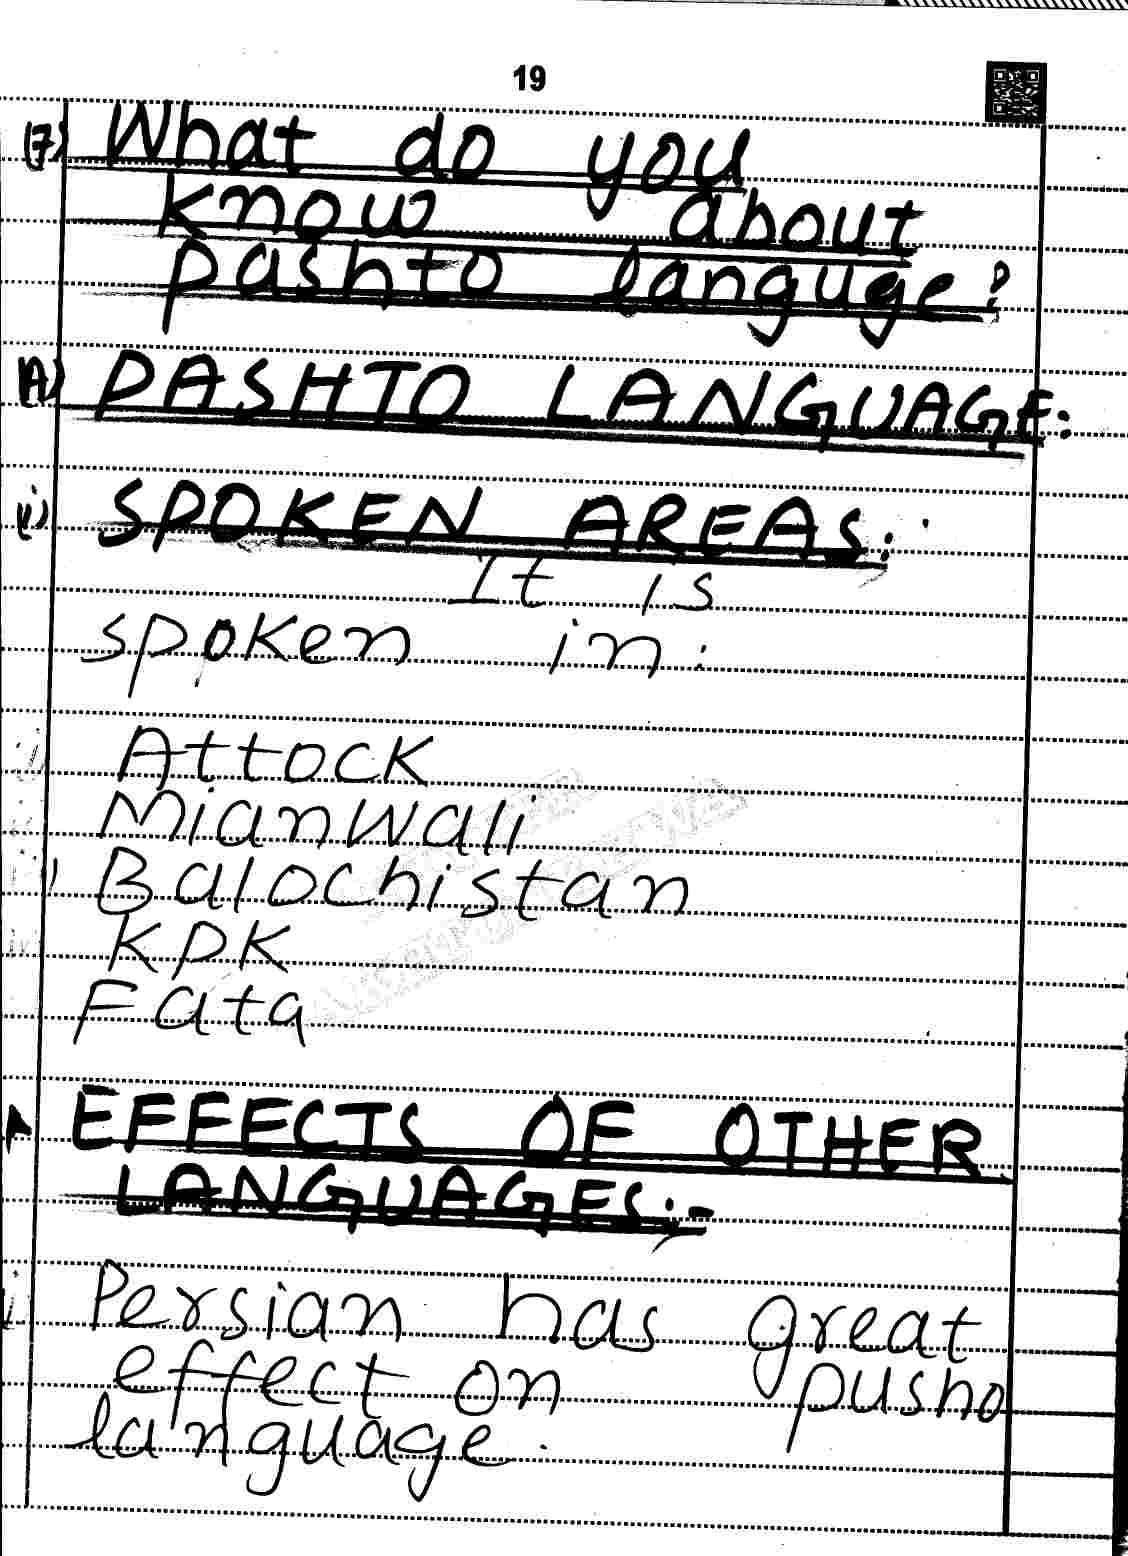 19
(7) What do you
know about
pashto languge?
(A) PASHTO LANGUAGE:
(i) SPOKEN AREAS:
It is
spoken in:
Attock
Mianwali
Balochistan
KPK
Fata
EFFECTS OF OTHER
LANGUAGES:-
i Persian has great
effect on pusho
language.